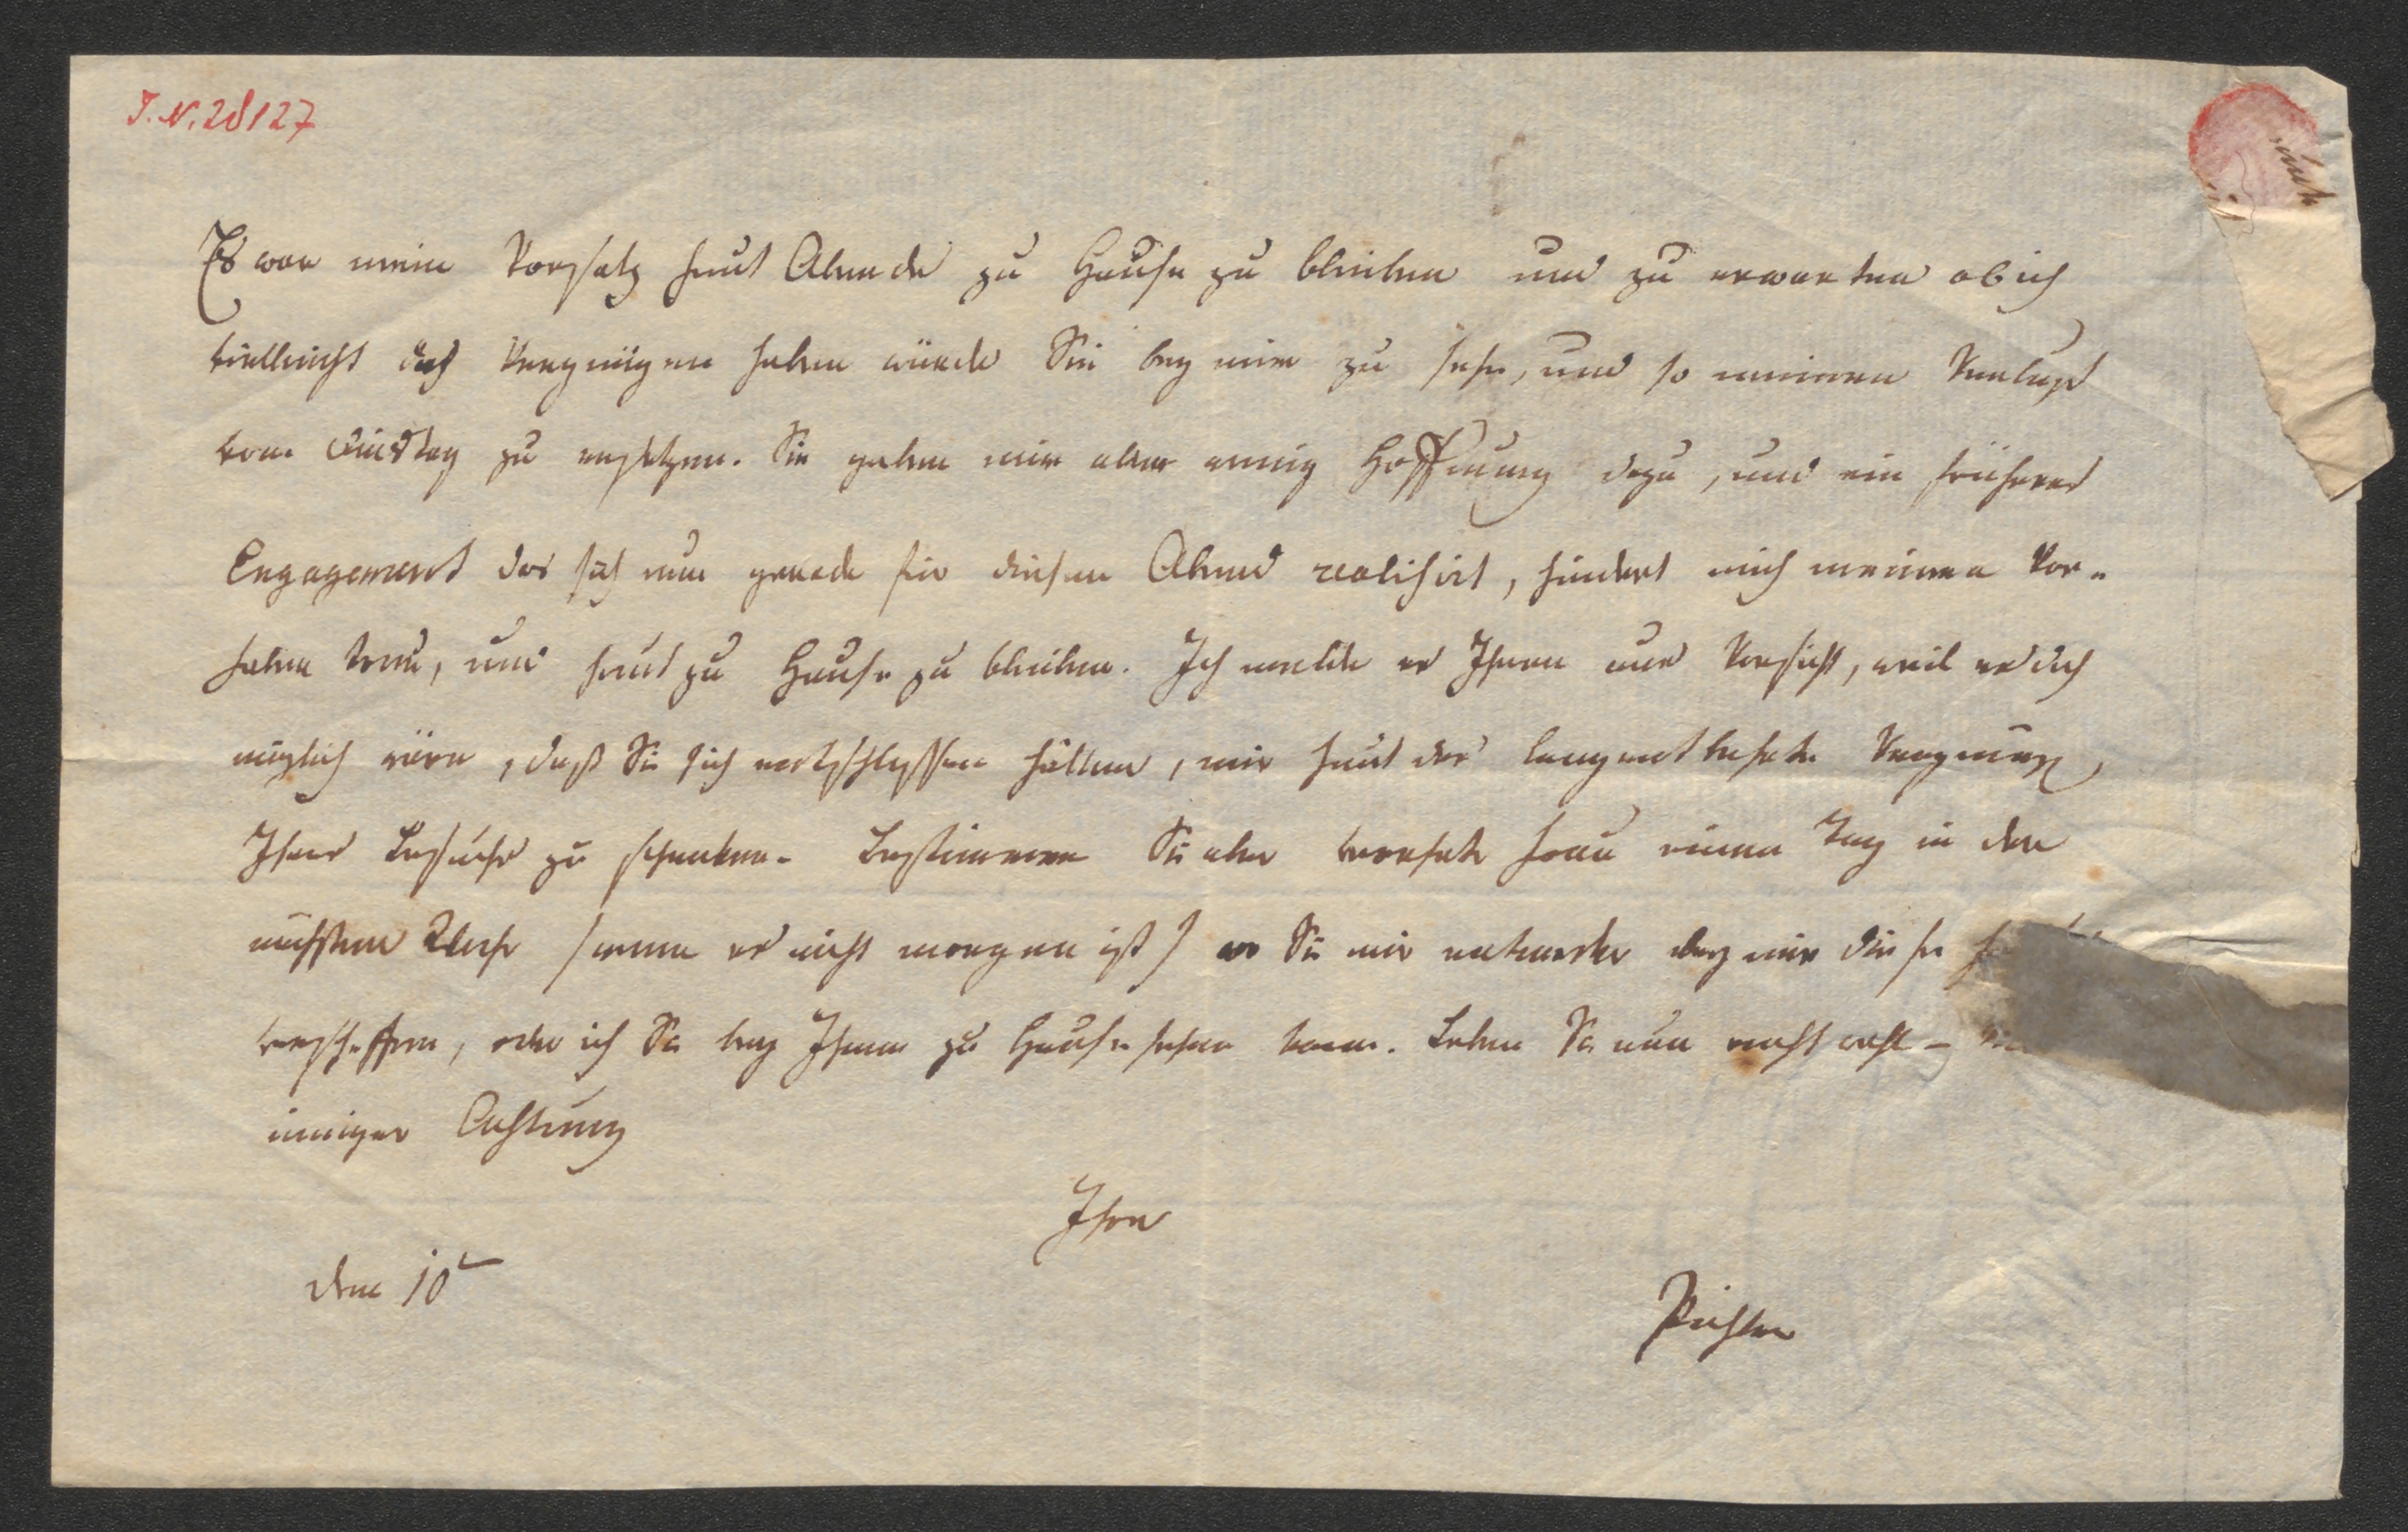 I.N. 28127
Es war mein Vorsatz heut Abends zu Hause zu bleiben und zu erwarten ob ich
vielleicht das Vergnügen haben würde Sie bey mir zu sehn, und so meinen Verlust
vom Dinstag zu ersetzen. Sie gaben mir aber wenig Hoffnung dazu, und ein früheres
Engagement das sich nun gerade für diesen Abend realisirt, hindert mich meinem Vor-
haben treu, und heut zu Hause zu bleiben. Ich melde es Ihnen aus Vorsicht, weil es doch
möglich wäre, daß Sie sich entschlossen hätten, mir heut das langentbehrte Vergnügen
Ihres Besuchs zu schenken. Bestimmen Sie aber verehrte Frau einen Tag in der
nächsten Woche /wenn es nicht morgen ist/ wo Sie mir entweder bey mir diese
verschaffen, oder ich Sie bey Ihnen zu Hause sehen kann. Leben Sie nun recht wohl –
inniger Achtung
Ihre
den 10t
Pichler